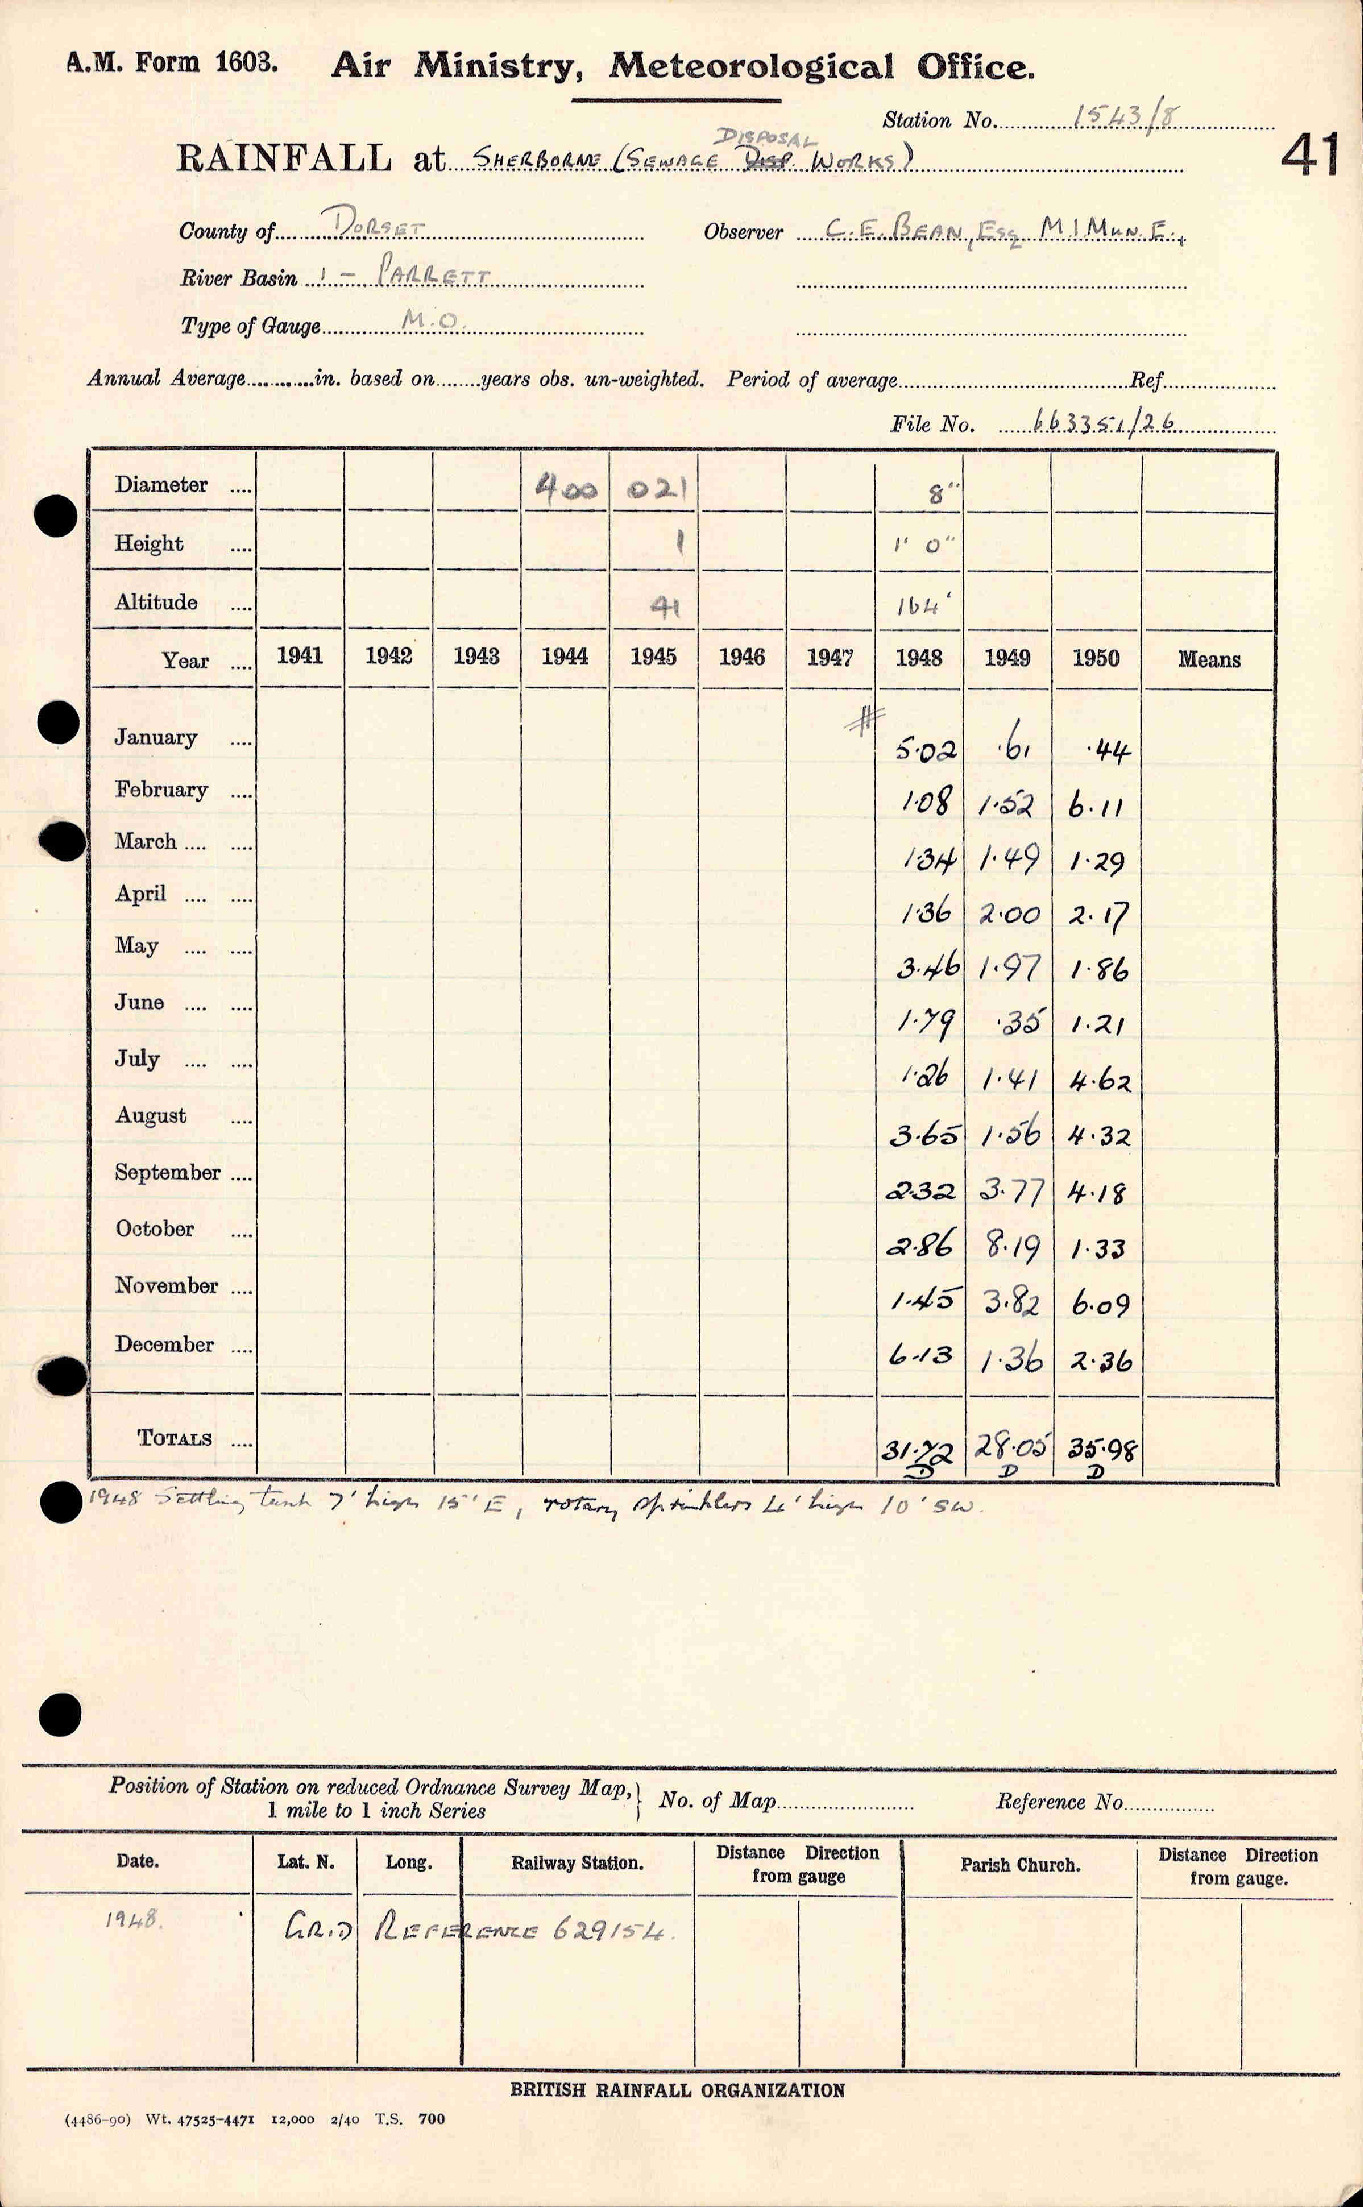 A.M. Form 1603. Air Ministry, Meteorological Office.
Station No. 1543/8
41
DISPOSAL
RAINFALL at SHERBORNE (SEWAGE DISP. WORKS)
County of DORSET Observer C. E. BEAN, ESQ M.I.MUN.E.,
River Basin 1 - PARRETT
Type of Gauge M.O.
Annual Average............in. based on........years obs. un-weighted. Period of average........Ref........
File No. 663351/26
Diameter .... 400 021 8"
Height .... 1 1' 0"
Altitude .... 41 164'
Year .... 1941 1942 1943 1944 1945 1946 1947 1948 1949 1950 Means
January .... # 5.02 .61 .44
February .... 1.08 1.52 6.11
March .... .... 1.34 1.49 1.29
April .... .... 1.36 2.00 2.17
May .... .... 3.46 1.97 1.86
June .... .... 1.79 .35 1.21
July .... .... 1.26 1.41 4.62
August .... 3.65 1.56 4.32
September .... 2.32 3.77 4.18
October .... 2.86 8.19 1.33
November .... 1.45 3.82 6.09
December .... 6.13 1.36 2.36
TOTALS .... 31.72 28.05 35.98
D D D
1948 Settling tank 7' high 15' E, rotary sprinklers 4' high 10' SW.
Position of Station on reduced Ordnance Survey Map,} No. of Map........ Reference No........
1 mile to 1 inch Series
Date. Lat. N. Long. Railway Station. Distance Direction from gauge Parish Church. Distance Direction from gauge.
1948. GRID REFERENCE 629154.
BRITISH RAINFALL ORGANIZATION
(4486-90) Wt. 47525-4471 12,000 2/40 T.S. 700